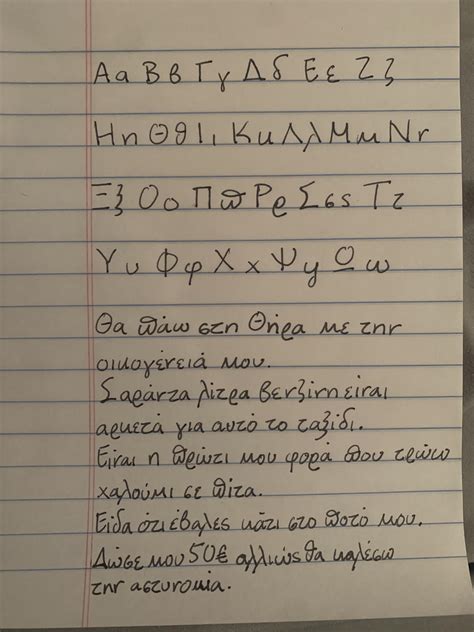 Αα Ββ Γγ Δδ Εε Ζζ
Ηη Θθ Ιι Κκ Λλ Μμ Νν
Ξξ Οο Ππ Ρρ Σσς Ττ
Υυ Φφ Χχ Ψψ Ωω
Θα πάω στη Θήρα με την
οικογένειά μου.
Σαράντα λίτρα βενζίνη είναι
αρκετά για αυτό το ταξίδι.
Είναι η πρώτι μου φορά που τρώω
χαλούμι σε πίτα.
Είδα ότι έβαλες κάτι στο ποτό μου.
Δώσε μου 50€ αλλιώς θα καλέσω
την αστυνομία.